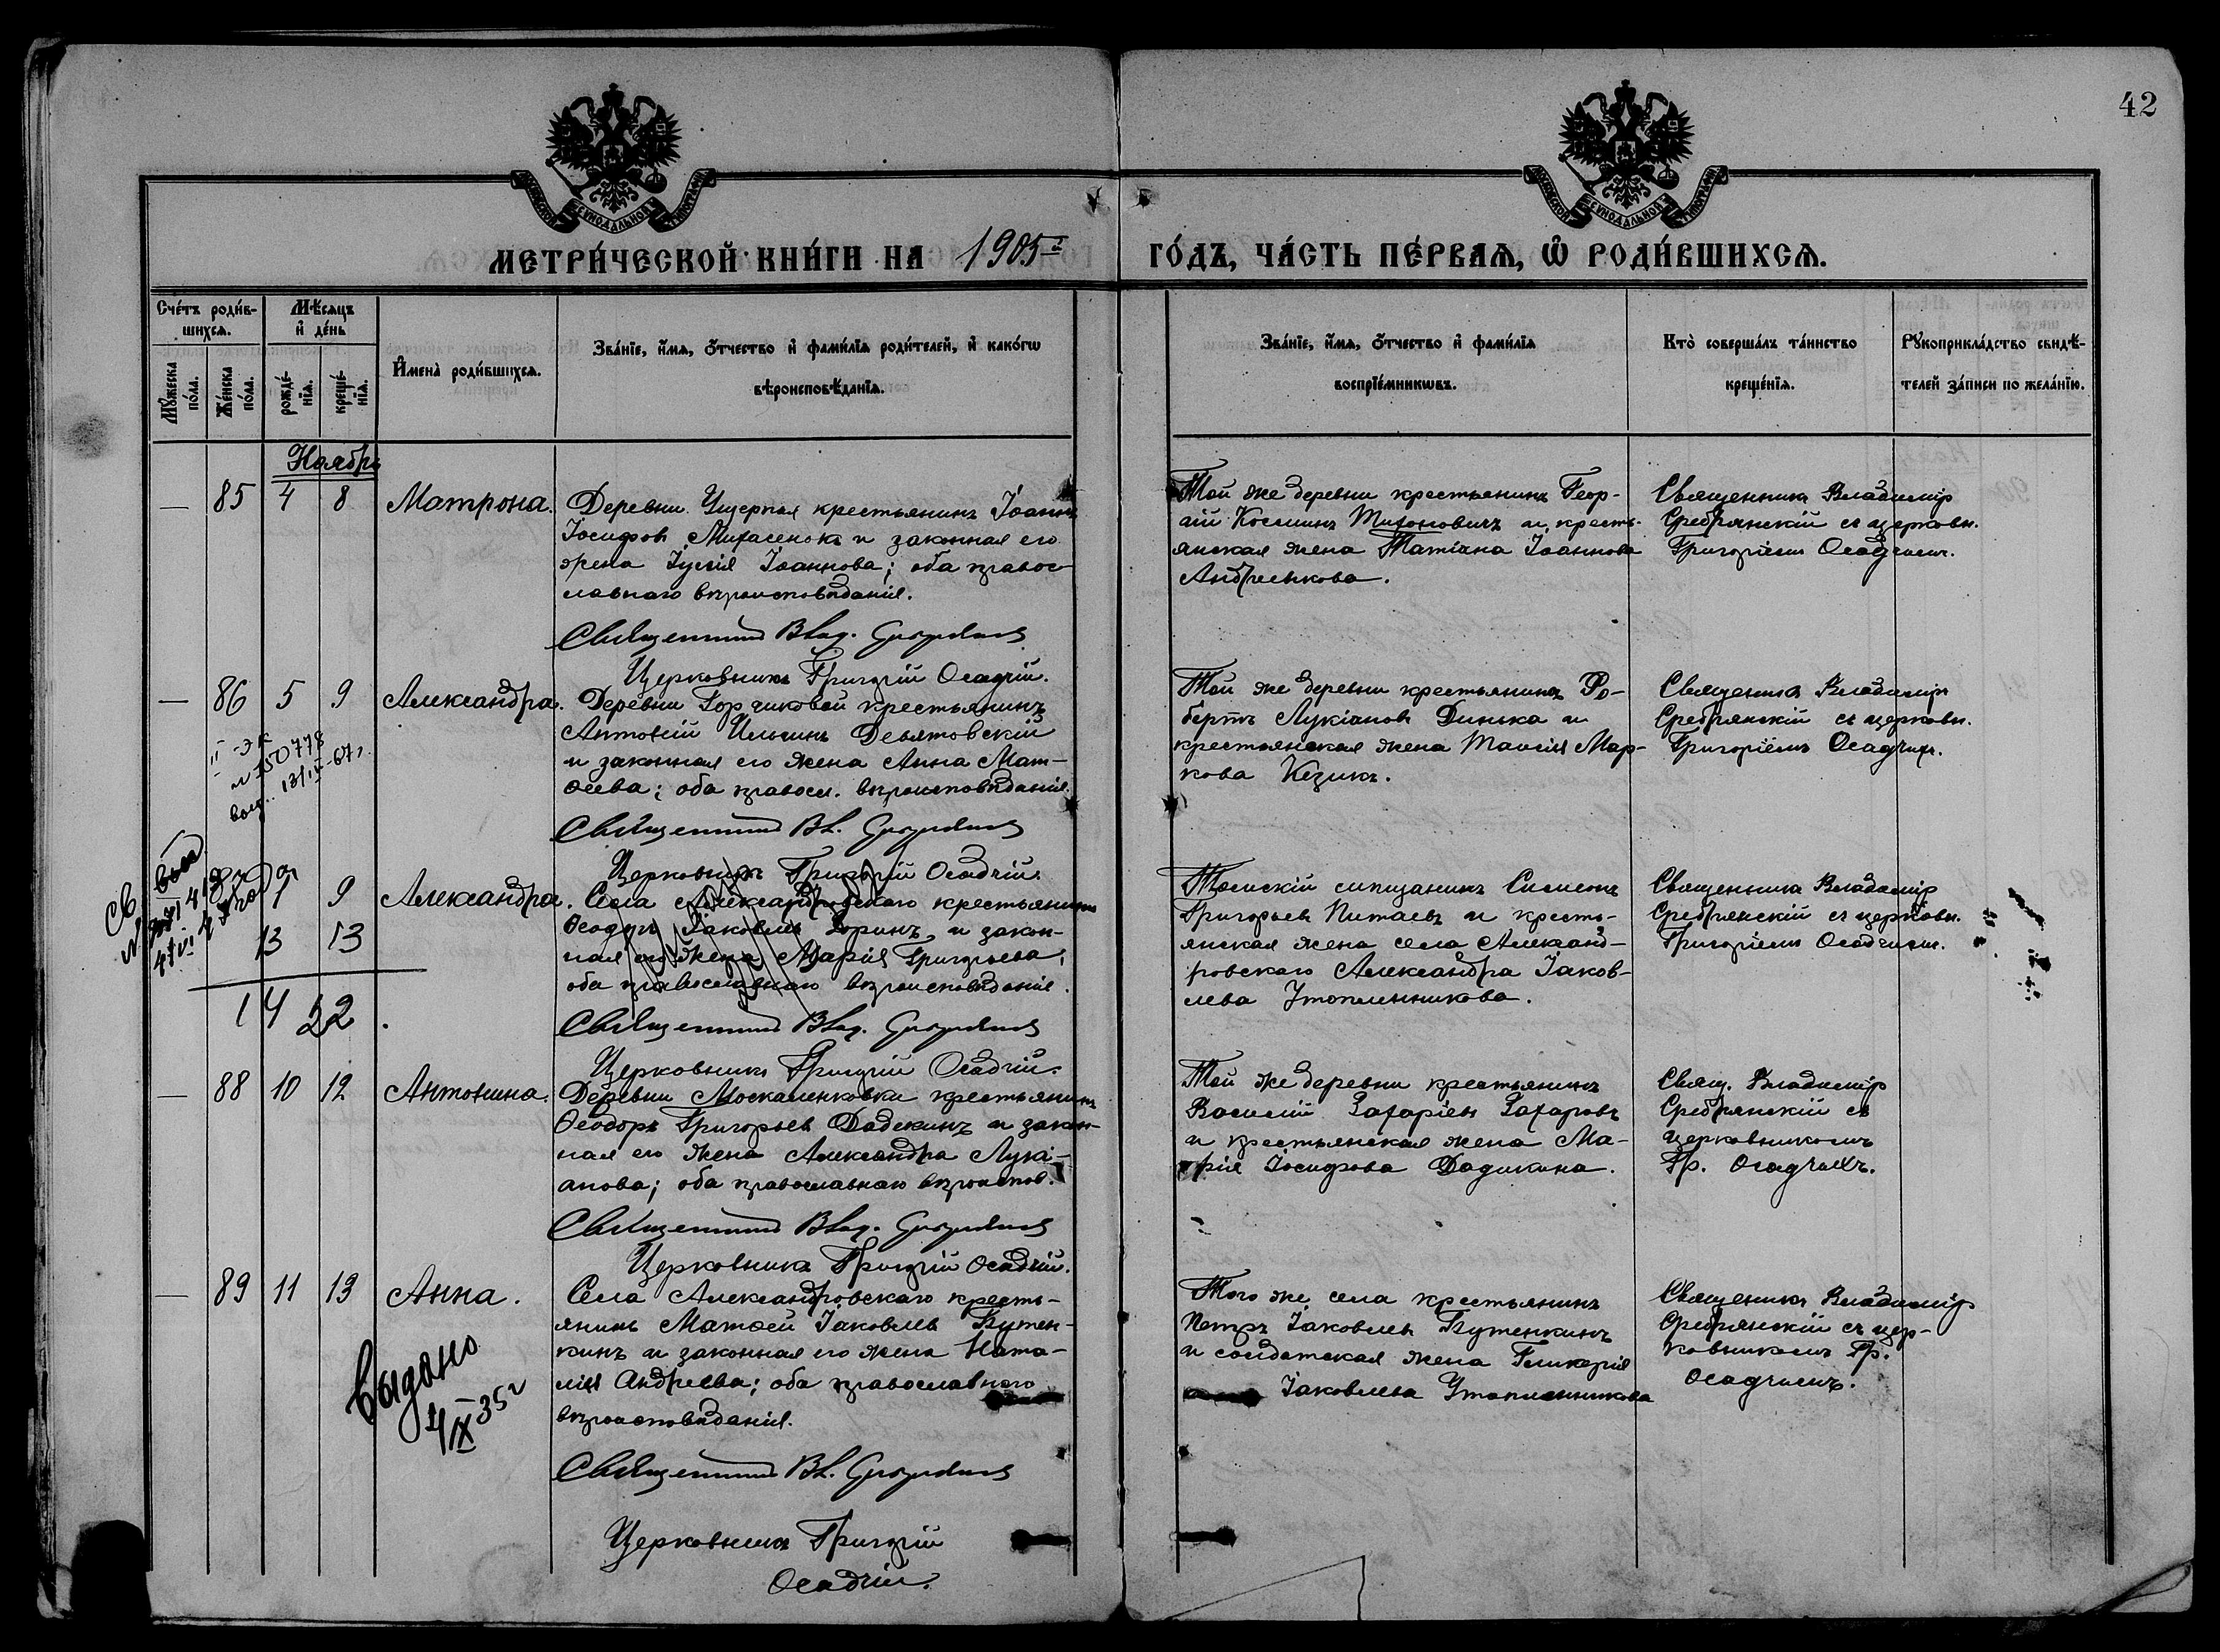 42
МОСКОВСКОЙ СѴНОДАЛЬНОЙ ТИПОГРАФІИ
МОСКОВСКОЙ СѴНОДАЛЬНОЙ ТИПОГРАФІИ
МЕТРИ́ЧЕСКОЙ КНИ́ГИ НА 1905 г
ГО́ДЪ, ЧА́СТЬ ПЕ́РВАѦ, Ѡ РОДИ́ВШИХСѦ.
Сче́тъ роди́в-
шихсѧ.
Мꙋжеска по́ла.
Же́нска по́ла.
Мѣ́сѧцъ
и҆ де́нь
рожде́-
нїѧ.
креще́-
нїѧ.
И҆мена̀ роди́вшихсѧ.
Зва́нїе, и҆́мѧ, ѻ҆́тчество и҆ фами́лїѧ роди́телей, и҆ како́гѡ
вѣроисповѣ́данїѧ.
Зва́нїе, и҆́мѧ, ѻ҆́тчество и҆ фами́лїѧ
воспрїе́мникѡвъ.
Кто̀ соверша́лъ та́инство
креще́нїѧ.
Рꙋкоприкла́дство свидѣ́-
телей за́писи по жела́нїю.
Ноябрь
— 85 4 8 Матрона.
Деревни крестьянинъ Іоаннъ
Іосифовъ Михасенокъ и законная его
жена Іоаннова; оба правос-
лавнаго вѣроисповѣданія.
Священникъ Влад. Сребрянскій
Церковникъ Григорій Осадчій.
Той же деревни крестьянинъ Геор-
гій Косминъ Тихоновичъ и кресть-
янская жена Татіана Іоаннова
Андреенкова.
Священникъ Владиміръ
Сребрянскій съ церковн.
Григоріемъ Осадчимъ.
— 86 5 9 Александра.
Деревни Горчиковой крестьянинъ
Антоній Ильинъ Девятовскій
и законная его жена Анна Мат-
ѳеева; оба правосл. вѣроисповѣданія.
Священникъ Вл. Сребрянскій
Церковникъ Григорій Осадчій.
Той же деревни крестьянинъ Ро-
бертъ Лукіановъ Динька и
крестьянская жена Таисія Мар-
кова Кезикъ.
Священникъ Владиміръ
Сребрянскій съ церковн.
Григоріемъ Осадчимъ.
II -ЭК
№ 750778
выд. 13/IV-67 г.
9 Александра.
Села Александровскаго крестьянинъ
Ѳеодоръ Іаковлевъ Зоринъ и закон-
ная его жена Марія Григорьева,
оба православнаго вѣроисповѣданія.
Священникъ Влад. Сребрянскій
Церковникъ Григорій Осадчій.
Томскій мѣщанинъ Симеонъ
Григорьевъ Питаевъ и кресть-
янская жена села Александ-
ровскаго Александра Іаков-
лева Утопленникова.
Священникъ Владиміръ
Сребрянскій съ церковн.
Григоріемъ Осадчимъ.
13 13
14 22
— 88 10 12 Антонина.
Деревни Москаленковки крестьянинъ
Ѳеодоръ Григорьевъ Дадекинъ и закон-
ная его жена Александра Лукі-
анова; оба православнаго вѣроиспов.
Священникъ Влад. Сребрянскій
Церковникъ Григорій Осадчій.
Той же деревни крестьянинъ
Василій Захаріевъ Захаровъ
и крестьянская жена Ма-
рія Іосифова Дадикина.
Свящ. Владиміръ
Сребрянскій съ
церковникомъ
Гр. Осадчимъ.
— 89 11 13 Анна.
Села Александровскаго кресть-
янинъ Матѳей Іаковлевъ Путен-
кинъ и законная его жена Ната-
лія Андреева; оба православнаго
вѣроисповѣданія.
Священникъ Вл. Сребрянскій
Церковникъ Григорій
Осадчій.
Того же села крестьянинъ
Петръ Іаковлевъ Путенкинъ
и солдатская жена Гликерія
Іаковлева Утопленникова
Священникъ Владиміръ
Сребрянскій съ цер-
ковникомъ Гр.
Осадчимъ.
Выдано
4/IX 35 г